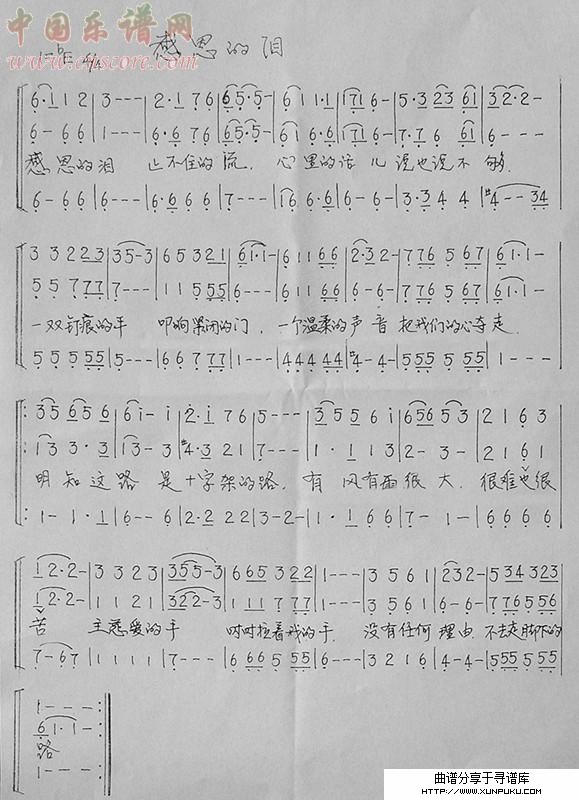 中国乐谱网
www.cnscore.com
感恩的泪
1=bE 4/4
6·1 1 2 | 3 - - - | 2·1 7 6 | 65·5·- | 61 11·1 | 171 6- | 5·3 23 61 | 32·2-
6 - 6 6 | 1 - - - | 6·6 7 6 | 65·5·- | 61 6·6 | 171 6- | 7·7 6 61 | 6 - - -
感恩的泪 止不住的流, 心里的话儿说也说不够.
6 - 6 6 | 6 - - - | 6·6 6 6 | 7 - - - | 16 6·6 | 6 - 6 - | 3·3 4 4 | #4 - - 34
3 3 223 | 35 - 3 | 6 5 321 | 61·1- | 6 11 66 | 2·32- | 776 5 67 | 61·1-
5 5 777 | 7 - - - | 1 1 555 | 6 - - - | 6 11 66 | 6 - 6 - | 776 5 67 | 61·1-
一双钉痕的手 叩响紧闭的门, 一个温柔的声音 把我们的心夺走.
5 5 5 55 | 5 - - - | 66 77 | 1 - - - | 44 44 44 | #4 - 4 - | 555 5 55 | 1 - - -
35 65 6 | 6i - i | 2·i 7 6 | 5 - - - | 3 55 6 i | 656 53 | 2 1 6 3
13 3·3 | 13 - 3 | #4·3 2 1 | 7 - - - | 1·1 1 3 | 2 - 3 - | 2 1 6 1
明知这路 是十字架的路, 有风有雨很大, 很难也很
1 - 1·1 | 6 - - 6 | 2·2 22 | 3 - 2 - | 1·1 6 6 | 7 - 1 - | 6 6 6 6
12·2- | 3 3 2 3 | 355 - 3 | 665 322 | 1 - - - | 3 5 6 1 | 232 2- | 534 323
12·2- | 1 1 2 1 | 322 - 3 | 1 1 777 | 1 - - - | 3 5 6 1 | 6 - 6 - | 776 555
苦 主慈爱的手 时时拉着我的手, 没有任何理由 不去走脚下的
7 - 67 | 1 1 1 1 | 7 - - - | 6 66 5 55 | 6 - - - | 3 2 1 6 | 4 - 4 - | 555 5 55
1 - - - :
61·1 - :
路
1 - - - :
曲谱分享于寻谱库
HTTP://WWW.XUNPUKU.COM